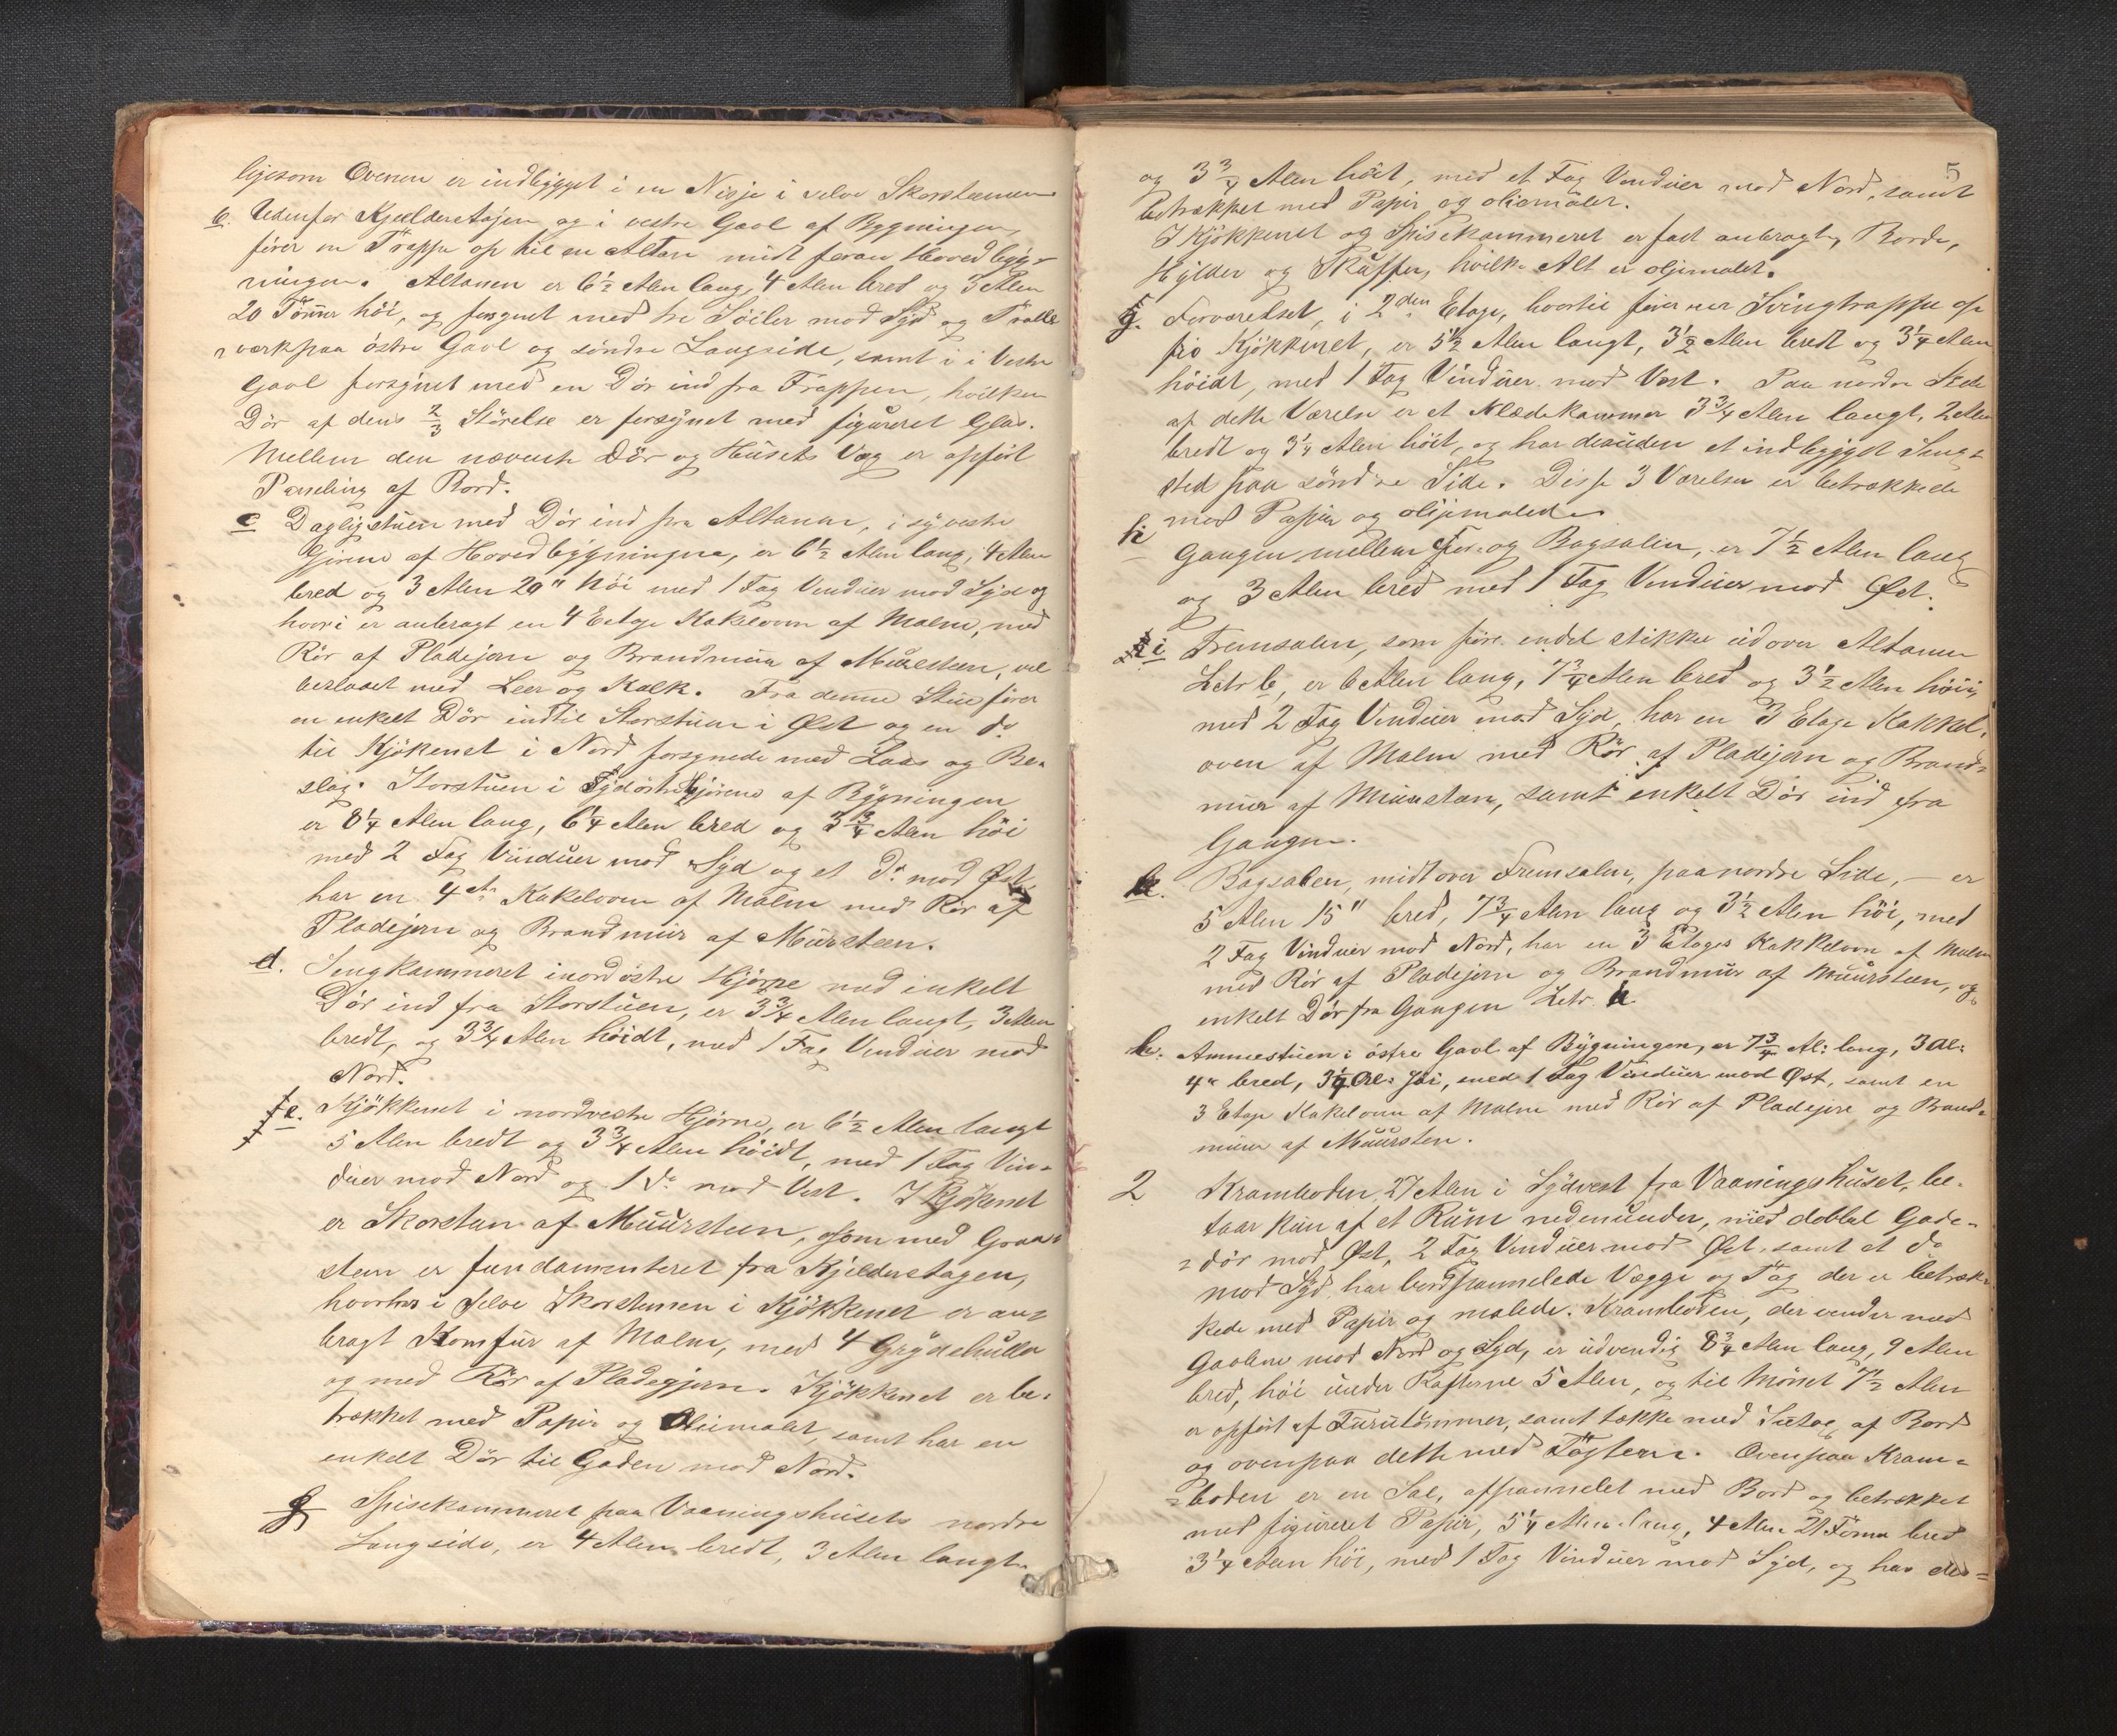 ligesom Ovenen er indbygget i en Nisje i selve Skorstenen
b. Udenfor Kjelderetagen og i vestre Gavl af Bygningen,
fører en Trappe op til en Altan midt foran Hovedbyg-
ningen. Altanen er 6½ Alen lang, 4 Alen bred og 3 Alen
20 Tommer höi, og forsynet med tre Söiler mod Syd og Tralle
værk paa östre Gavl og söndre Langside, samt i i Vestre
Gavl forsynet med en Dör ind fra Trappen, hvilken
Dör af dens 2/3 Störelse er forsynet med figureret Glas.
Mellem den nævnte Dör og Husets Væg er opfört
Paneling af Bord.
c Dagligstuen med Dör ind fra Altanen, i sydvestre
Hjörne af Hovedbygningen, er 6½ Alen lang, 4 Alen
bred og 3 Alen 20" höi med 1 Fag Vinduer mod Syd og
hvori er anbragt en 4 Etage Kakelovn af Malm, med
Rör af Pladejern og Brandmuur af Muursteen, vel
beslaaet med Leer og Kalk. Fra denne Stue förer
en enkelt Dör ind til Storstuen i Öst og en do
til Kjökenet i Nord forsynede med Laas og Be-
slag. Storstuen i Sydöstre Hjörne af Bygningen
er 8¼ Alen lang, 6¼ Alen bred og 3¾ Alen höi
med 2 Fag Vinduer mod Syd og et Do mod Øst,
har en 4 Et. Kakelovn af Malm med Rör af
Pladejern og Brandmuur af Muursteen.
d. Sengkammeret i nordöstre Hjörne med enkelt
Dör ind fra Storstuen, er 3¾ Alen langt, 3 Alen
bredt, og 3¾ Alen höidt, med 1 Fag Vinduer mod
Nord.
e. Kjökkenet i nordvestre Hjörne, er 6½ Alen langt
5 Alen bredt og 3¾ Alen höidt, med 1 Fag Vin-
duer mod Nord og 1 Do mod Vest. I Kjökenet
er Skorsten af Muursteen, som med Graa-
steen er fundamenteret fra Kjelderetagen,
hvorhos i selve Skorstenen i Kjökkenet er an-
bragt Komfur af Malm, med 4 Grydehuller
og med Rör af Pladegjern. Kjökkenet er be-
trækket med Papir og Oliemalet, samt har en
enkelt Dör til Gaden mod Nord.
Spisekammeret paa Vaaningshusets nordre
Langside, er 4 Alen bredt, 3 Alen langt
5
og 3¾ Alen höit, med et Fag Vinduer mod Nord, samt
betrækket med Papir og oliemalet.
I Kjökkenet og Spisekammeret er fast anbragt, Borde,
Hylder og Skuffer, hvilke Alt er oljemalet.
g. Forværelset, i 2den Etage, hvortil förer en Svingtrappe op
fra Kjökkenet, er 5½ Alen langt, 3½ Alen bredt og 3¼ Alen
höidt, med 1 Fag Vinduer mod Vest. Paa nordre Side
af dette Værelse er et Klædekammer 3¾ Alen langt, 2 Alen
bredt og 3¼ Alen höit, og har desuden et indbygget Seng-
sted paa söndre Side. Disse 3 Værelser er betrækkede
med Papir og oljemalede
h Gangen mellem For- og Bagsalen, er 7½ Alen lang
og 3 Alen bred med 1 Fag Vinduer mod Øst.
i Fremsalen, som for endel stikker ud over Altanen
Letr b, er 6 Alen lang, 7¾ Alen bred og 3½ Alen höi,
med 2 Fag Vinduer mod Syd, har en 3 Etage Kakkel-
oven af Malm med Rör af Pladejern og Brand-
muur af Muursteen, samt enkelt Dör ind fra
Gangen.
k. Bagsalen, midt over Fremsalen, paa nordre Side, - er
5 Alen 15" bred, 7¾ Alen lang og 3½ Alen höi, med
2 Fag Vinduer mod Nord, har en 3 Etages Kakkelovn af Malm
med Rör af Pladejern og Brandmuur af Muursteen, og
enkelt Dör fra Gangen Letr. h
Ammestuen i östre Gavl af Bygningen, er 7¾ Al: lang, 3 Al:
4" bred, 3¼ Al: höi, med 1 Fag Vinduer mod Øst, samt en
3 Etage Kakelovn af Malm med Rör af Pladejern og Brand-
muur af Muursten.
2 Kramboden, 27 Alen i Sydvest fra Vaaningshuset, be-
staar kun af et Rum nedenunder, med dobbel Gade-
dör mod Øst, 2 Fag Vinduer mod Øst, samt et do
mod Syd, har bordpanelede Vægge og Tag der er betræk-
kede med Papir og malede. Kramboden, der vender med
Gavlene mod Nord og Syd, er udvendig 8¾ Alen lang, 9 Alen
bred, höi under Rafterne 5 Alen, og til Mönet 7½ Alen
er opfört af Furutömmer, samt tække med Sutag af Bord
og ovenpaa dette med Tagsteen. Ovenpaa Kram-
boden er en Sal, afpannelet med Bord og betrækket
med figureret Papir, 5¼ Alen lang, 4 Alen 21 Tomm bred
3¼ Alen höi, med 1 Fag Vinduer mod Syd, og har des-